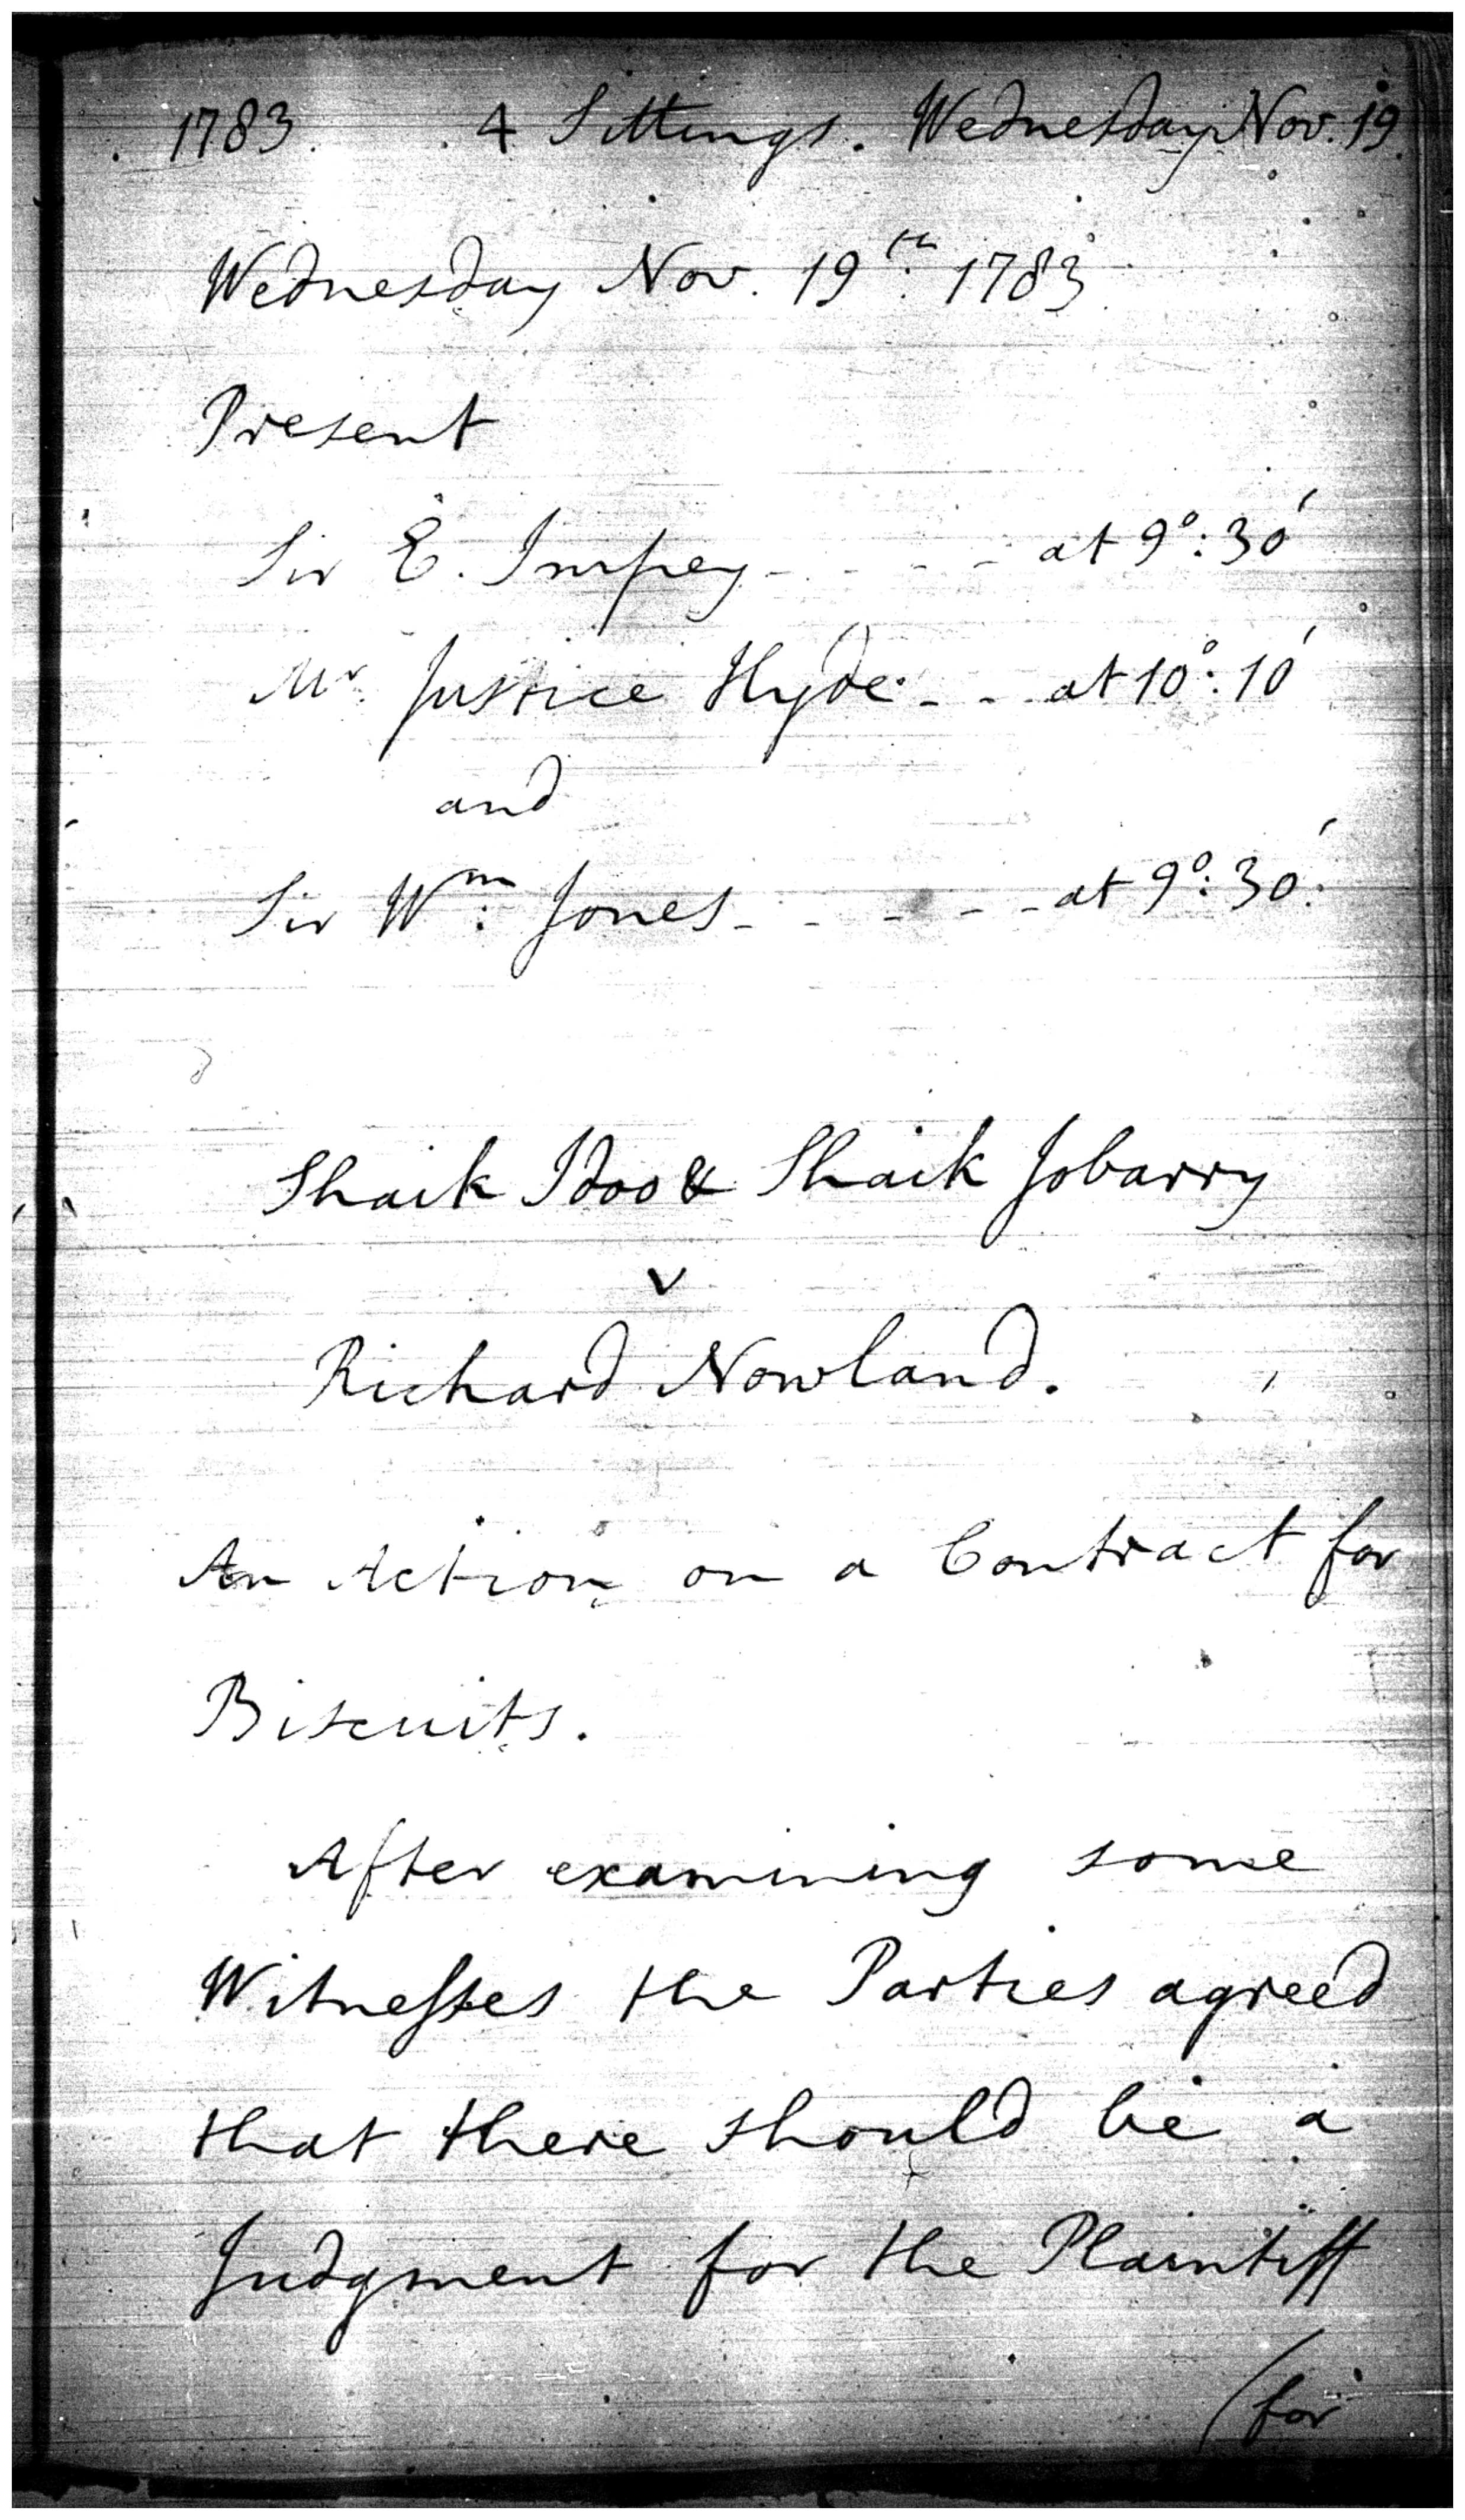 1783. 4 Sittings. Wednesday Nov. 19.
Wednesday Nov. 19th. 1783
Present
Sir E. Impey - - - - at 9°: 30'
Mr. Justice Hyde - - at 10°: 10'
and
Sir Wm: Jones - - - - - at 9°: 30'.
Shaik Idoo & Shaik Jobarry
v
Richard Nowland.
An Action on a Contract for
Biscuits.
After examining some
Witneſses the Parties agreed
that there should be a
Judgment for the Plaintiff
(for